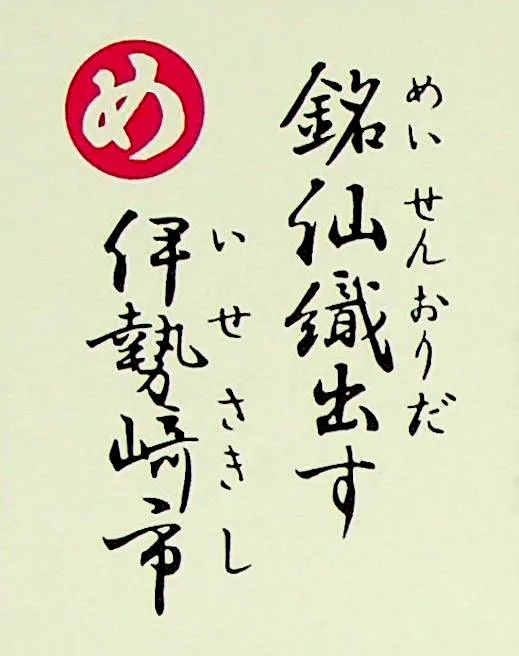 め
銘仙織出す
めいせんおりだ
伊勢崎市
いせさきし